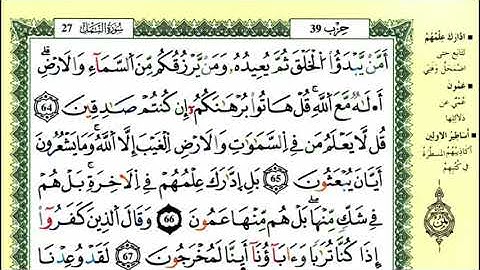 27 سُورَةُ النَّمْل
حِزْب 39
أَمَّن يَبْدَؤُا الْخَلْقَ ثُمَّ يُعِيدُهُ وَمَن يَرْزُقُكُم مِّنَ السَّمَاءِ وَالْأَرْضِ
أَءِلَٰهٌ مَّعَ اللَّهِ قُلْ هَاتُوا بُرْهَانَكُمْ إِن كُنتُمْ صَادِقِينَ 64
قُل لَّا يَعْلَمُ مَن فِي السَّمَٰوَٰتِ وَالْأَرْضِ الْغَيْبَ إِلَّا اللَّهُ وَمَا يَشْعُرُونَ
أَيَّانَ يُبْعَثُونَ 65 بَلِ ادَّٰرَكَ عِلْمُهُمْ فِي الْآخِرَةِ بَلْ هُمْ
فِي شَكٍّ مِّنْهَا بَلْ هُم مِّنْهَا عَمُونَ 66 وَقَالَ الَّذِينَ كَفَرُوا
إِذَا كُنَّا تُرَابًا وَءَابَاؤُنَا أَئِنَّا لَمُخْرَجُونَ 67 لَقَدْ وُعِدْنَا
ادَّارَكَ عِلْمُهُمْ
تَتَابَعَ حَتَّى
اضْمَحَلَّ وَفَنِيَ
عَمُونَ
عُمْيٌ عَنْ
دَلَائِلِهَا
أَسَاطِيرُ الْأَوَّلِينَ
أَكَاذِيبُهُمُ الْمُسَطَّرَةُ
فِي كُتُبِهِمْ